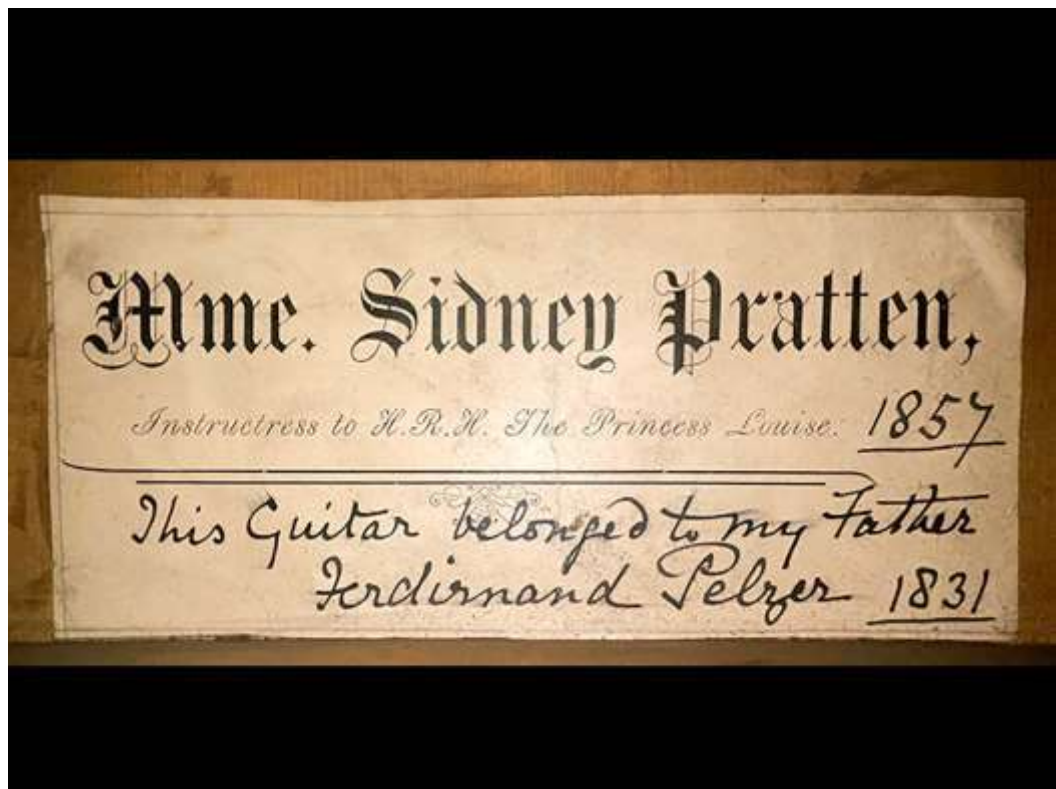 Mme. Sidney Pratten,
Instructress to H.R.H. The Princess Louise. 1857
This Guitar belonged to my Father
Ferdirnand Pelzer 1831